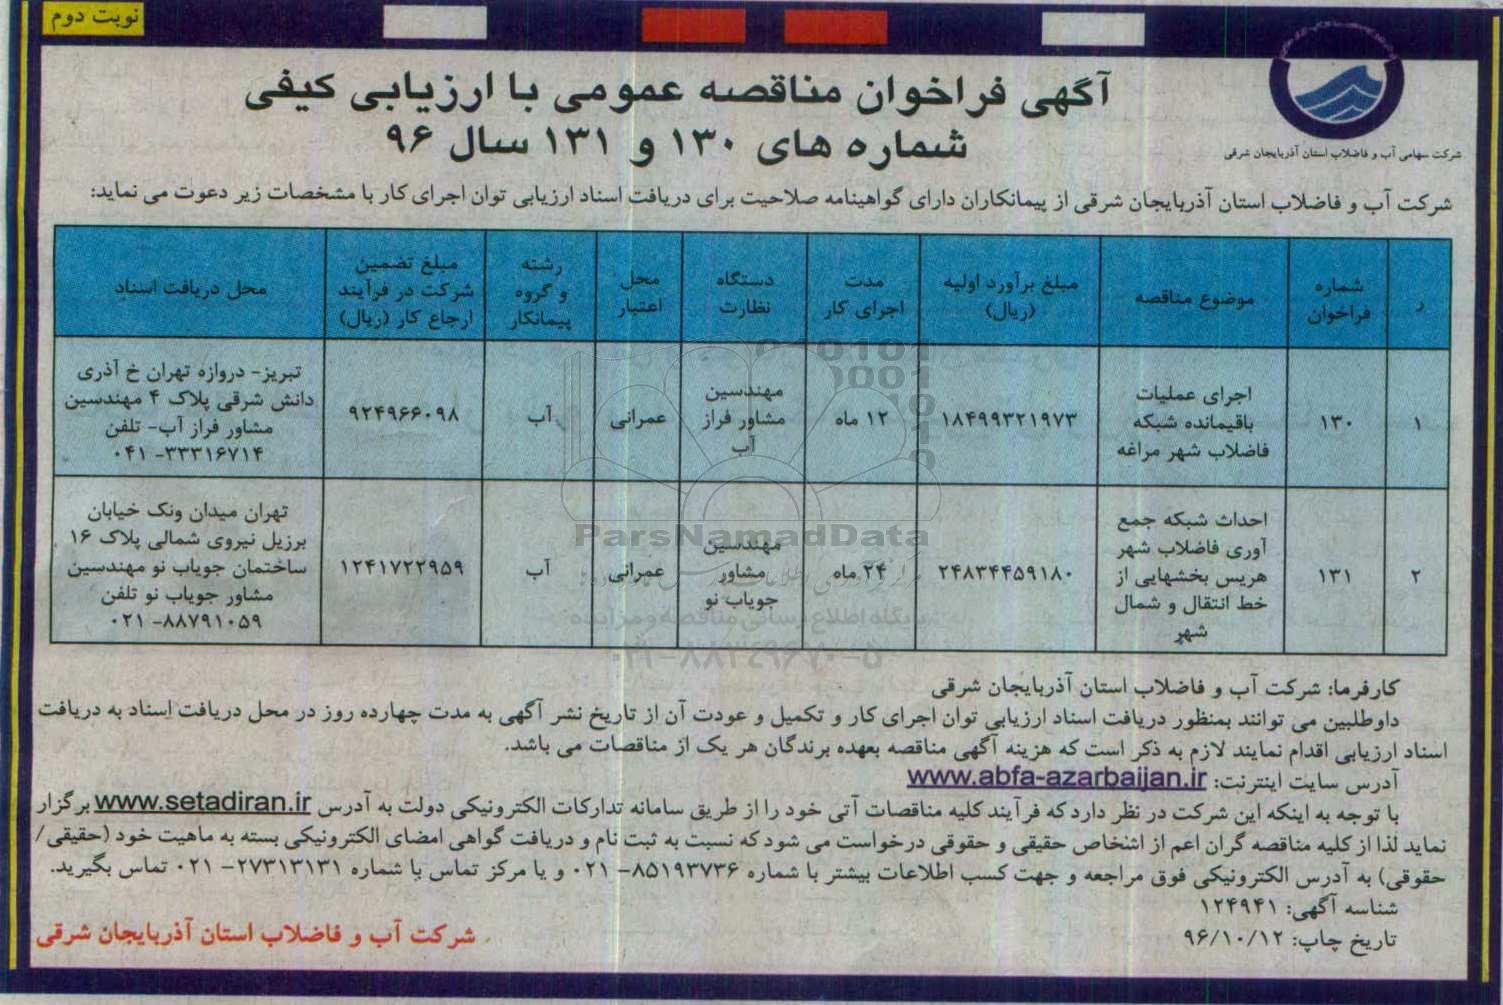 نوبت دوم
آگهی فراخوان مناقصه عمومی با ارزیابی کیفی
شماره های ۱۳۰ و ۱۳۱ سال ۹۶
شرکت سهامی آب و فاضلاب استان آذربایجان شرقی
شرکت آب و فاضلاب استان آذربایجان شرقی از پیمانکاران دارای گواهینامه صلاحیت برای دریافت اسناد ارزیابی توان اجرای کار با مشخصات زیر دعوت می نماید:
ر
شماره
فراخوان
موضوع مناقصه
مبلغ برآورد اولیه
(ریال)
مدت
اجرای کار
دستگاه
نظارت
محل
اعتبار
رشته
و گروه
پیمانکار
مبلغ تضمین
شرکت در فرآیند
ارجاع کار (ریال)
محل دریافت اسناد
۱
۱۳۰
اجرای عملیات
باقیمانده شبکه
فاضلاب شهر مراغه
۱۸۴۹۹۳۲۱۹۷۳
۱۲ ماه
مهندسین
مشاور فراز
آب
عمرانی
آب
۹۲۴۹۶۶۰۹۸
تبریز- دروازه تهران خ آذری
دانش شرقی پلاک ۴ مهندسین
مشاور فراز آب- تلفن
۰۴۱-۳۳۳۱۶۷۱۴
۲
۱۳۱
احداث شبکه جمع
آوری فاضلاب شهر
هریس بخشهایی از
خط انتقال و شمال
شهر
۲۴۸۳۴۴۵۹۱۸۰
۲۴ ماه
مهندسین
مشاور
جویاب نو
عمرانی
آب
۱۲۴۱۷۲۲۹۵۹
تهران میدان ونک خیابان
برزیل نیروی شمالی پلاک ۱۶
ساختمان جویاب نو مهندسین
مشاور جویاب نو تلفن
۰۲۱-۸۸۷۹۱۰۵۹
ParsNamadData
پایگاه اطلاع رسانی مناقصه و مزایده
۰۲۱-۸۸۳۴۹۶۷۰-۵
کارفرما: شرکت آب و فاضلاب استان آذربایجان شرقی
داوطلبین می توانند بمنظور دریافت اسناد ارزیابی توان اجرای کار و تکمیل و عودت آن از تاریخ نشر آگهی به مدت چهارده روز در محل دریافت اسناد به دریافت
اسناد ارزیابی اقدام نمایند لازم به ذکر است که هزینه آگهی مناقصه بعهده برندگان هر یک از مناقصات می باشد.
آدرس سایت اینترنت: www.abfa-azarbaijan.ir
با توجه به اینکه این شرکت در نظر دارد که فرآیند کلیه مناقصات آتی خود را از طریق سامانه تدارکات الکترونیکی دولت به آدرس www.setadiran.ir برگزار
نماید لذا از کلیه مناقصه گران اعم از اشخاص حقیقی و حقوقی درخواست می شود که نسبت به ثبت نام و دریافت گواهی امضای الکترونیکی بسته به ماهیت خود (حقیقی/
حقوقی) به آدرس الکترونیکی فوق مراجعه و جهت کسب اطلاعات بیشتر با شماره ۸۵۱۹۳۷۳۶- ۰۲۱ و یا مرکز تماس با شماره ۲۷۳۱۳۱۳۱- ۰۲۱ تماس بگیرید.
شناسه آگهی: ۱۲۴۹۴۱
تاریخ چاپ: ۹۶/۱۰/۱۲
شرکت آب و فاضلاب استان آذربایجان شرقی